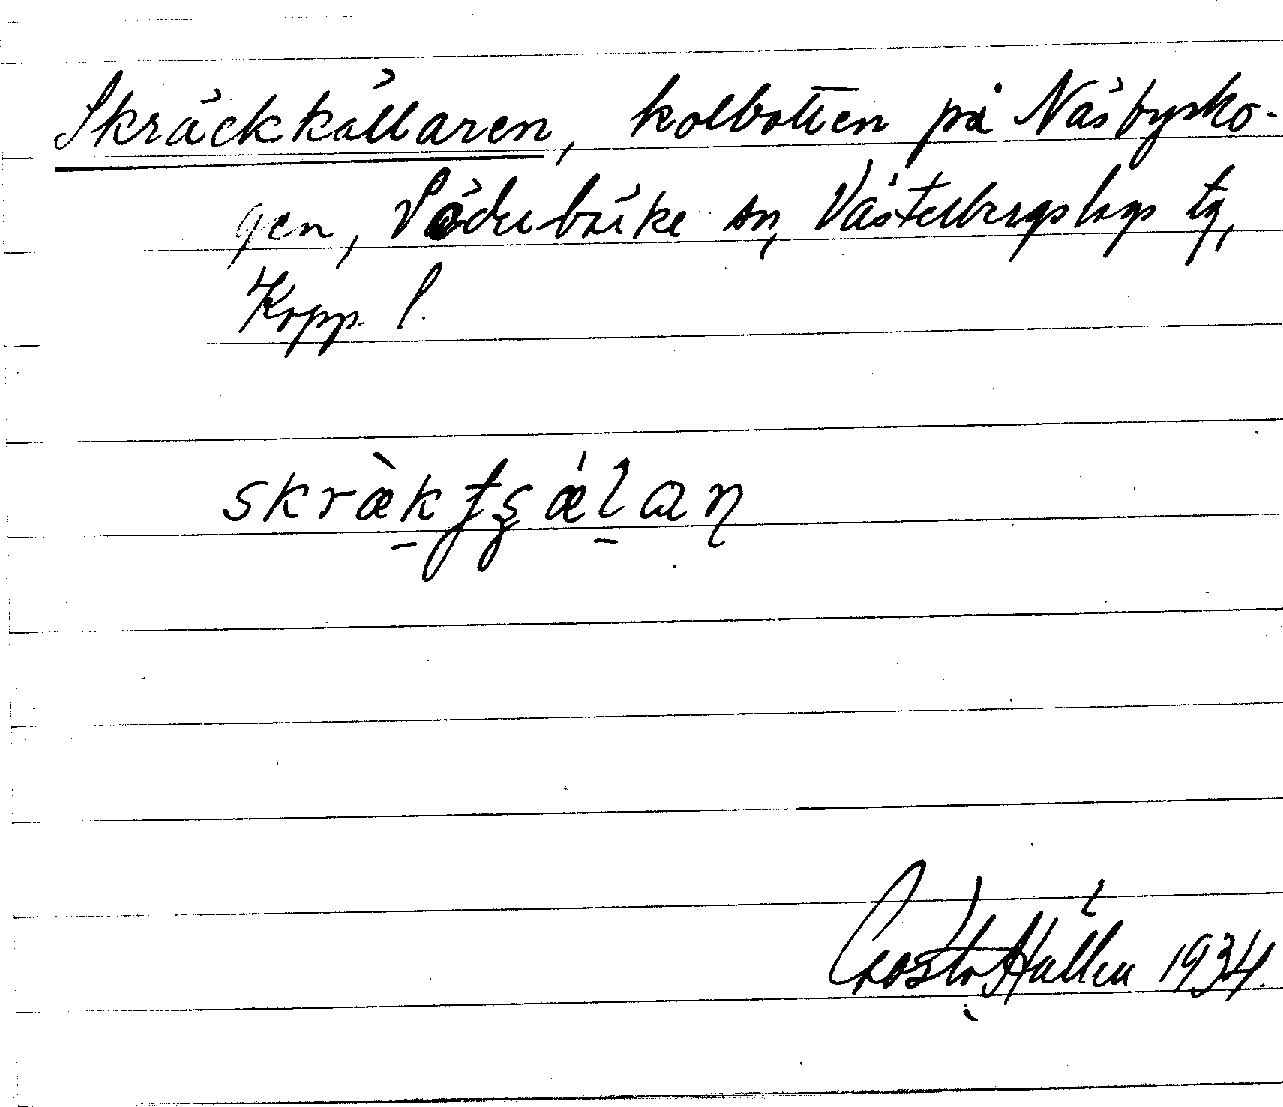 Skräckkällaren, kolbotten på Näsbysko-
gen, Söderbärke sn, Västerbergslags tg,
Kopp. l.
skræ̀kʈʂǽlan
Gösta Hallén 1934.